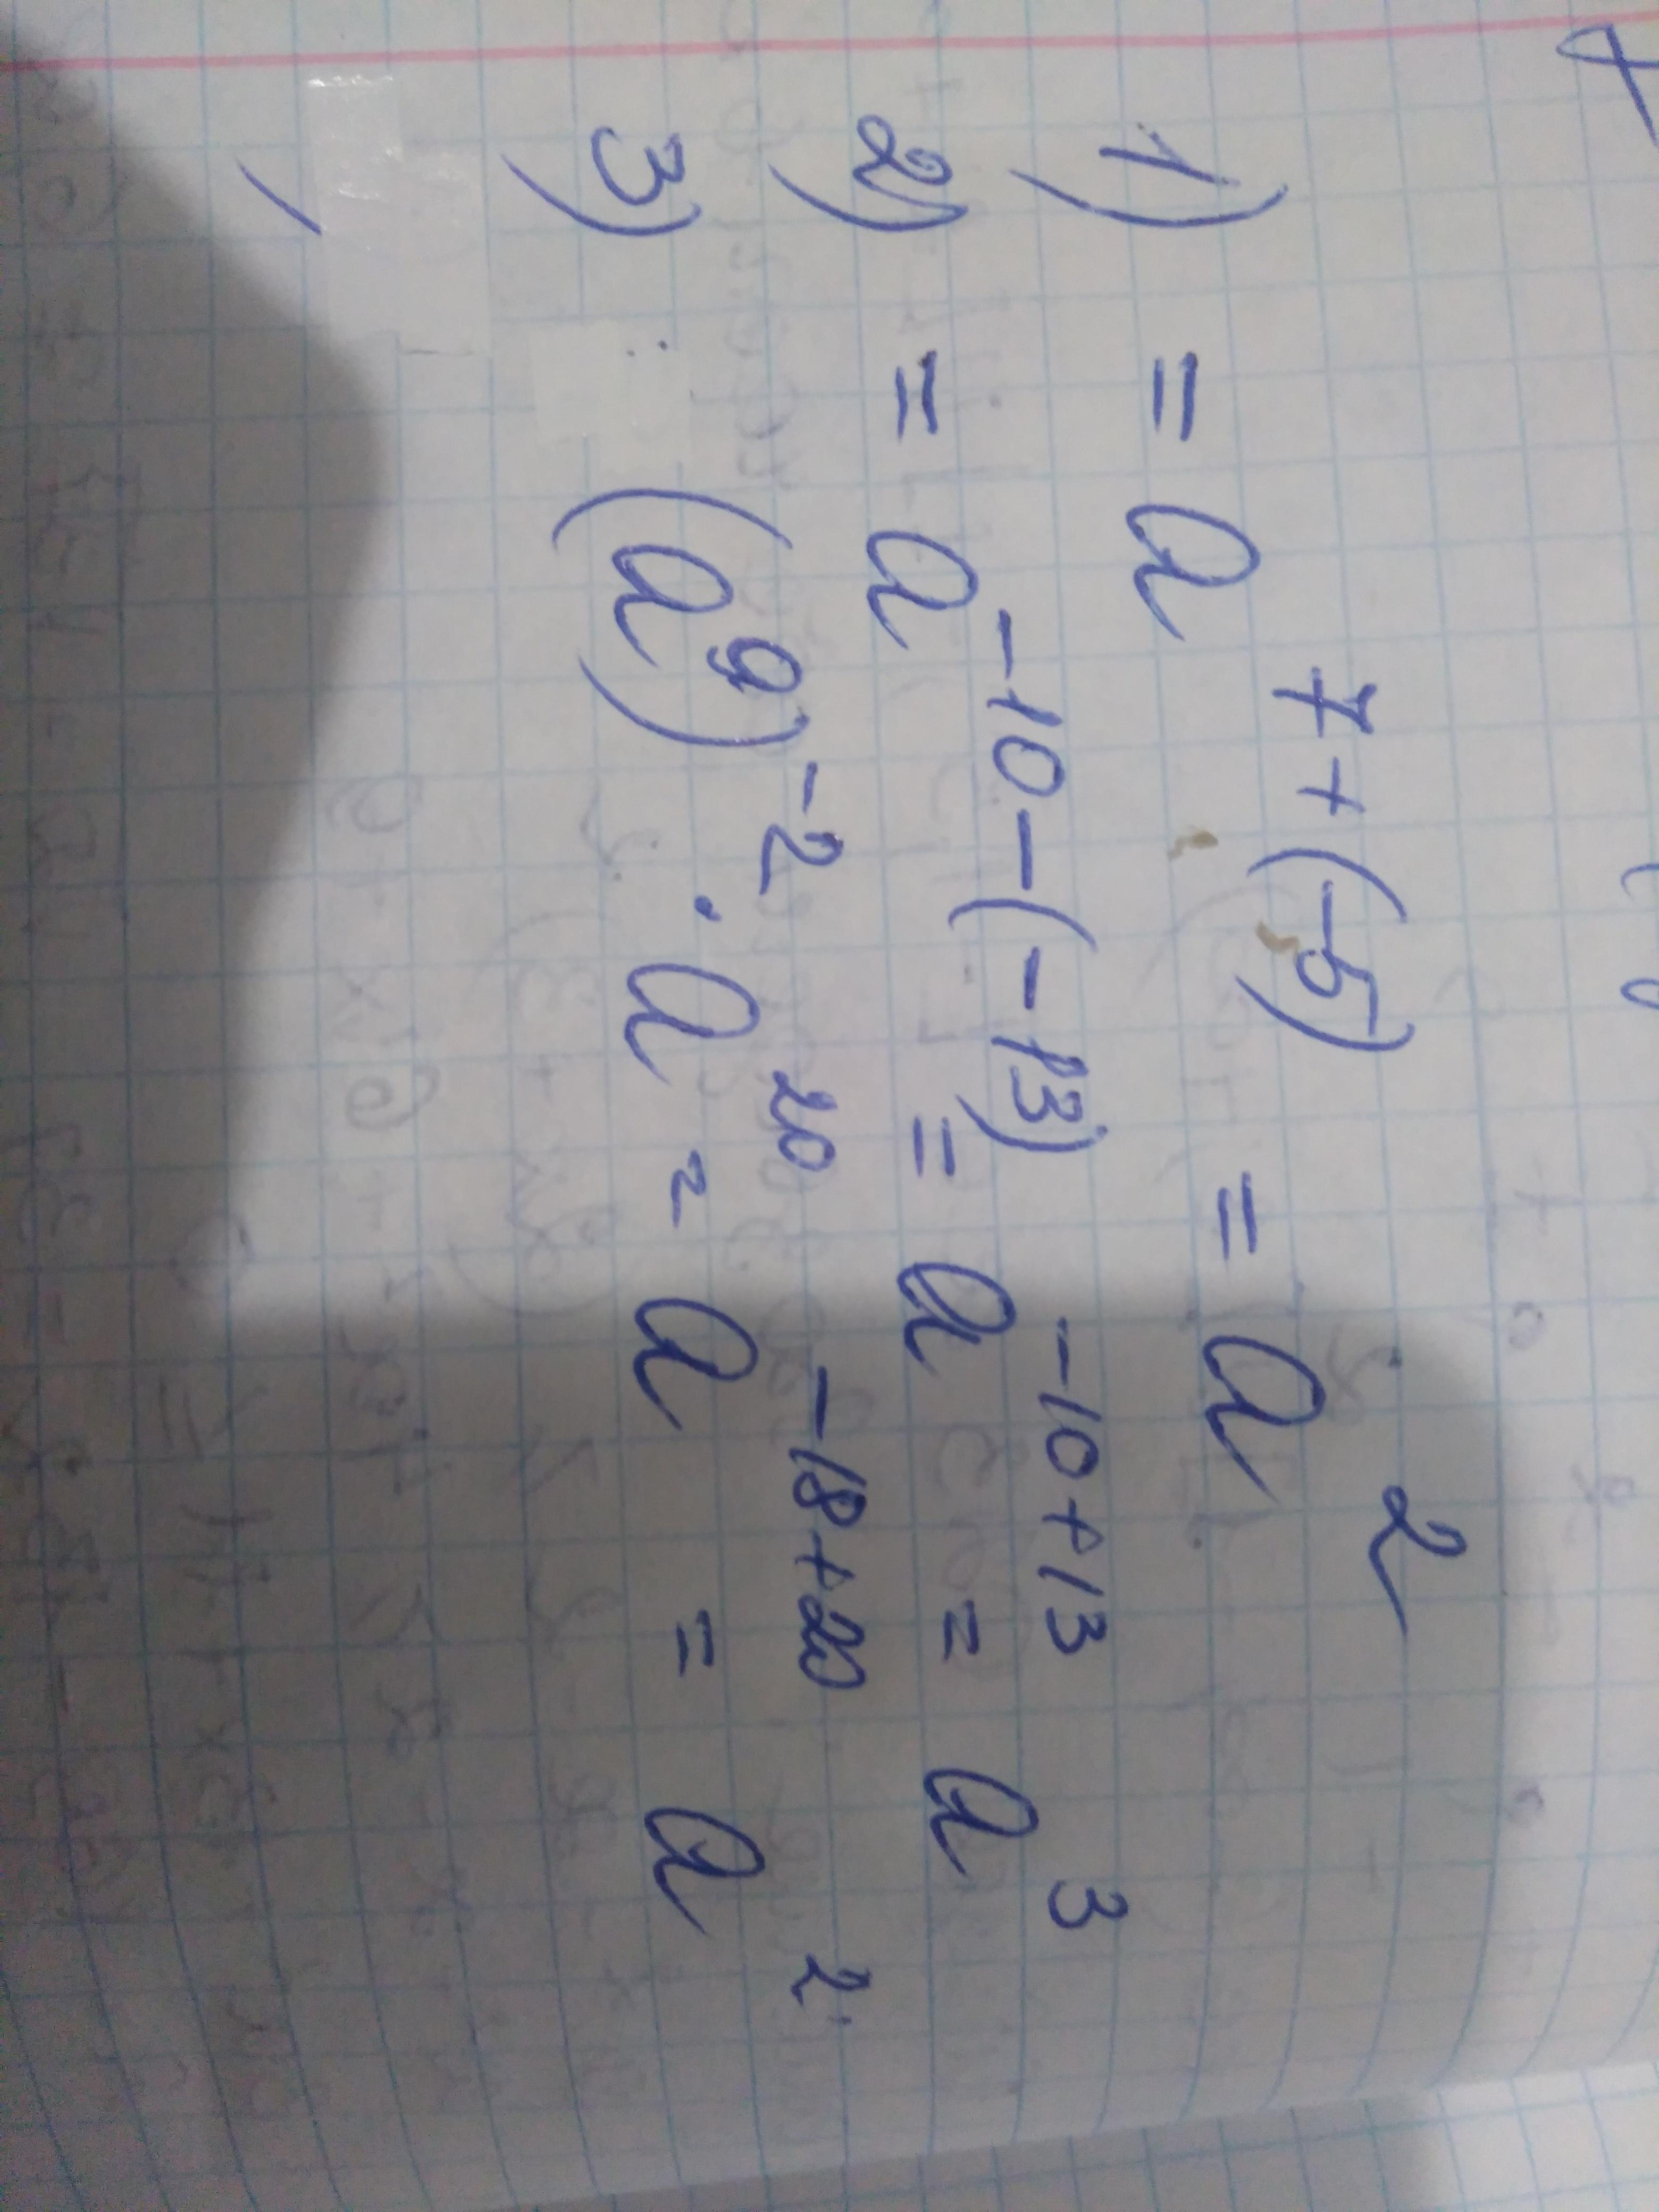 1) = a^{7+(-5)} = a^{2}
2) = a^{-10-(-13)} = a^{-10+13} = a^{3}
3) (a^{9})^{-2} · a^{20} = a^{-18+20} = a^{2}